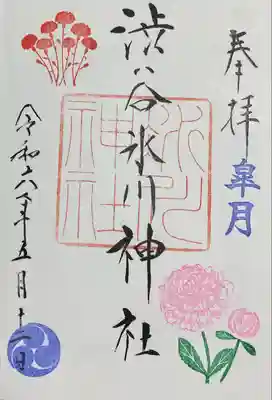 奉拝
皐月
渋谷氷川神社
氷川神社
令和六年五月十二日